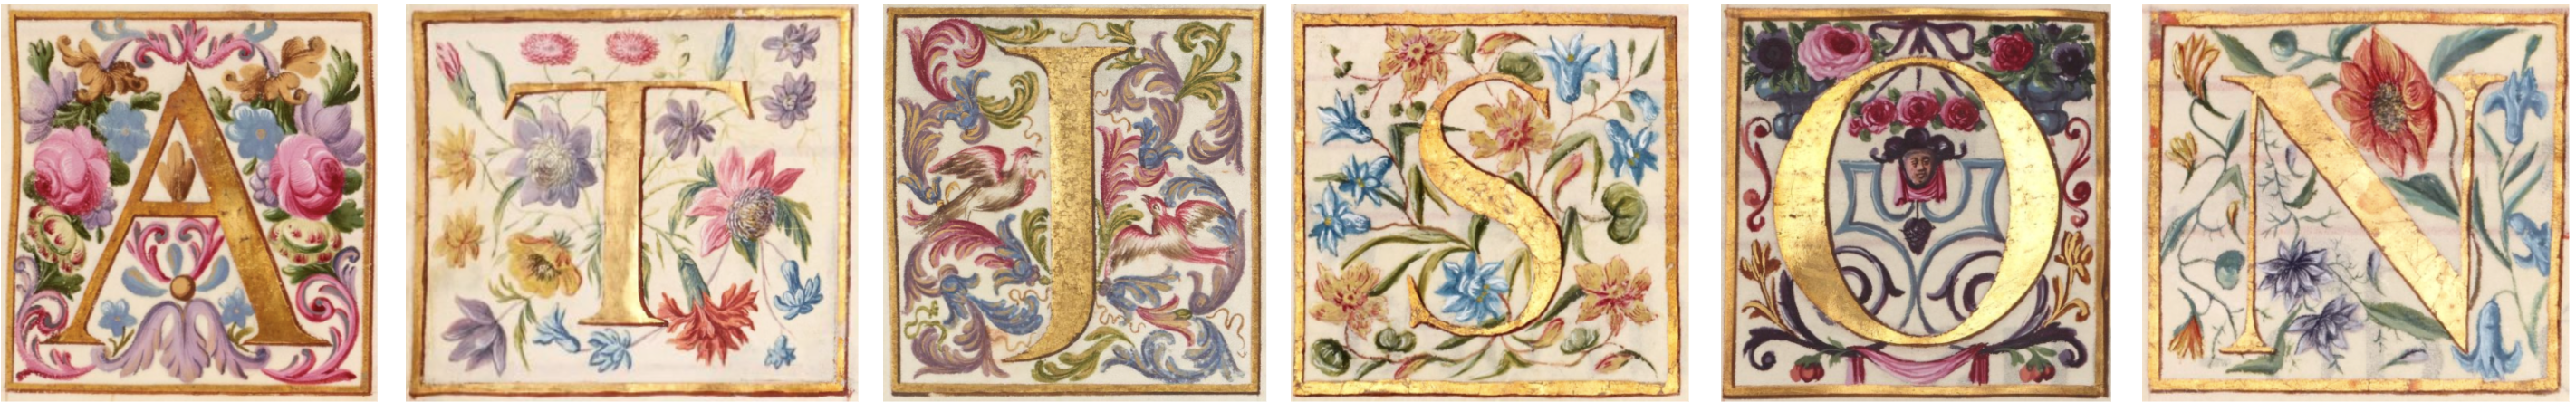 A T J S O N